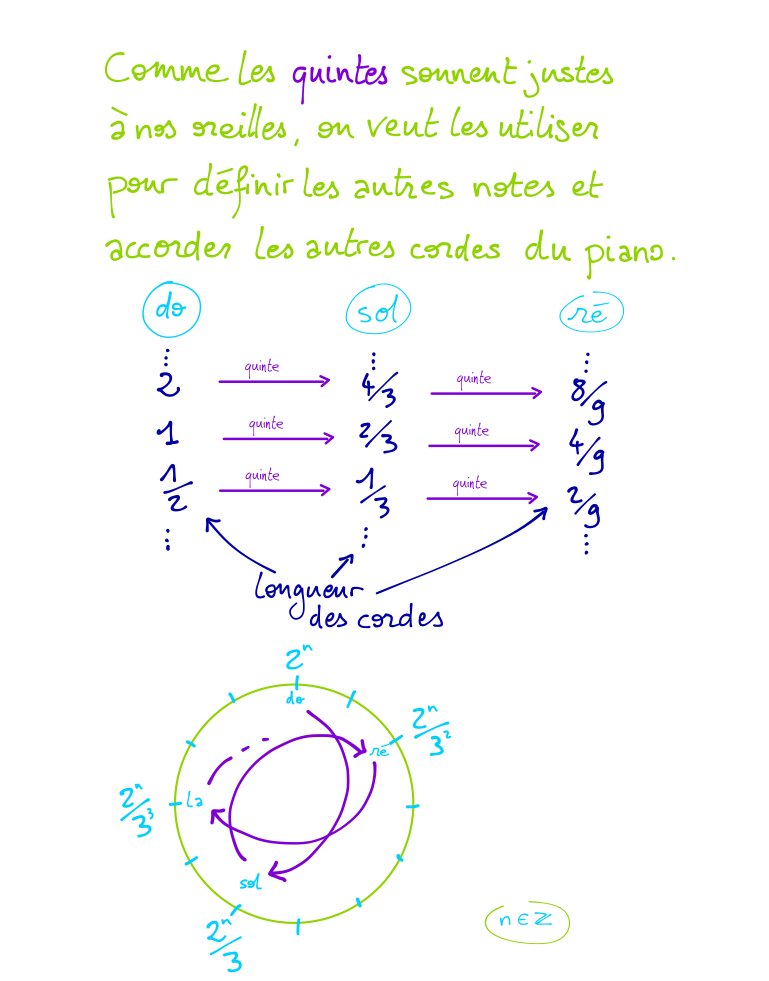 Comme les quintes sonnent justes
à nos oreilles, on veut les utiliser
pour définir les autres notes et
accorder les autres cordes du piano.
do sol ré
⋮ ⋮ ⋮
2 quinte 4/3 quinte 8/9
1 quinte 2/3 quinte 4/9
1/2 quinte 1/3 quinte 2/9
⋮ ⋮ ⋮
Longueur
des cordes
2ⁿ
do
2ⁿ/3²
ré
2ⁿ/3³
La
sol
2ⁿ/3
n ∈ ℤ